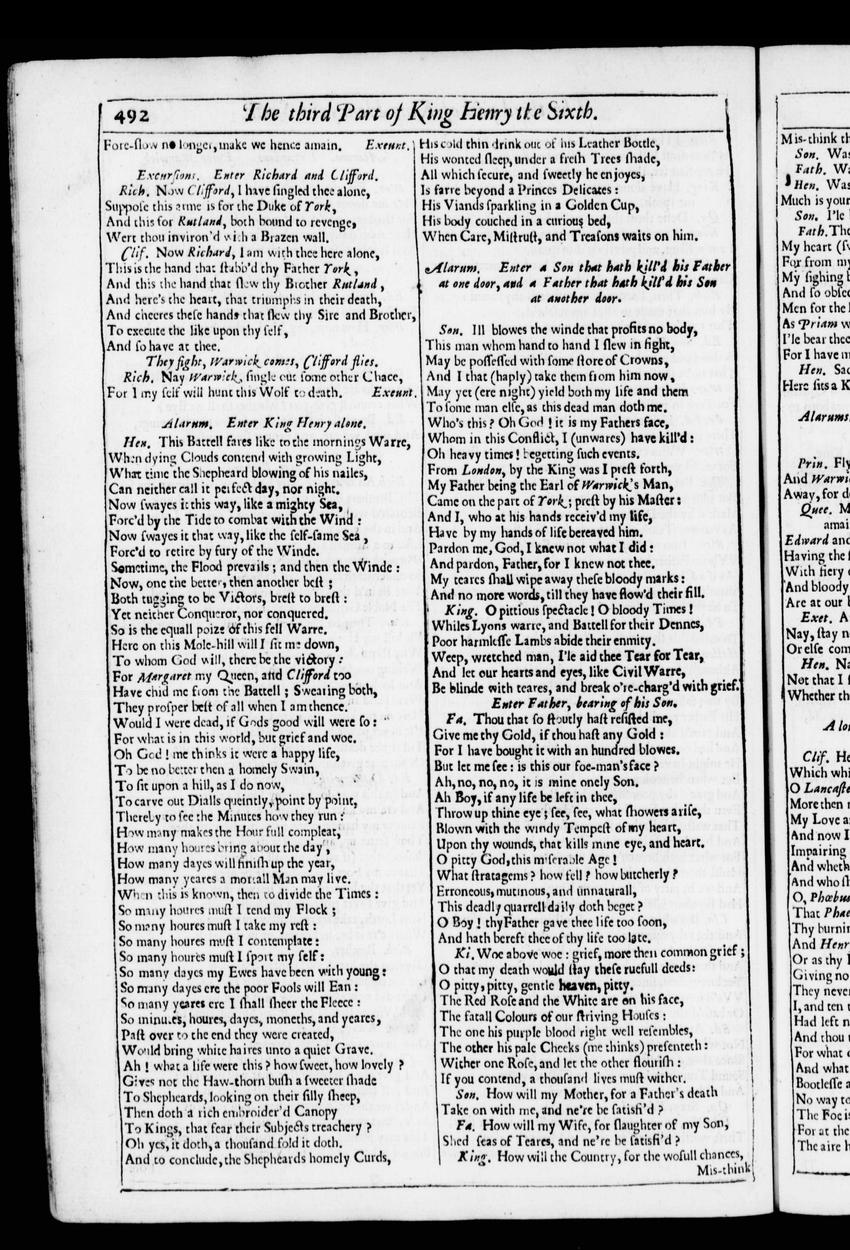 492
The third Part of King Henry the Sixth.
Fore-slow no longer, make we hence amain. Exeunt.
Excursions. Enter Richard and Clifford.
Rich. Now Clifford, I have singled thee alone,
Suppose this arme is for the Duke of York,
And this for Rutland, both bound to revenge,
Wert thou inviron'd with a Brazen wall.
Clif. Now Richard, I am with thee here alone,
This is the hand that stabb'd thy Father York,
And this the hand that slew thy Brother Rutland,
And here's the heart, that triumphs in their death,
And cheeres these hands that slew thy Sire and Brother,
To execute the like upon thy self,
And so have at thee.
They fight, Warwick comes, Clifford flies.
Rich. Nay Warwick, single out some other Chace,
For I my self will hunt this Wolf to death. Exeunt.
Alarum. Enter King Henry alone.
Hen. This Battell fares like to the mornings Warre,
When dying Clouds contend with growing Light,
What time the Shepheard blowing of his nailes,
Can neither call it perfect day, nor night.
Now swayes it this way, like a mighty Sea,
Forc'd by the Tide to combat with the Wind :
Now swayes it that way, like the self-same Sea,
Forc'd to retire by fury of the Winde.
Sometime, the Flood prevails ; and then the Winde :
Now, one the better, then another best ;
Both tugging to be Victors, brest to brest :
Yet neither Conqueror, nor conquered.
So is the equall poize of this fell Warre.
Here on this Mole-hill will I sit me down,
To whom God will, there be the victory :
For Margaret my Queen, and Clifford too
Have chid me from the Battell ; Swearing both,
They prosper best of all when I am thence.
Would I were dead, if Gods good will were so :
For what is in this world, but grief and woe.
Oh God ! me thinks it were a happy life,
To be no better then a homely Swain,
To sit upon a hill, as I do now,
To carve out Dialls queintly, point by point,
Thereby to see the Minutes how they run :
How many makes the Hour full compleat,
How many houres bring about the day,
How many dayes will finish up the year,
How many yeares a mortall Man may live.
When this is known, then to divide the Times :
So many houres must I tend my Flock ;
So many houres must I take my rest :
So many houres must I contemplate :
So many houres must I sport my self :
So many dayes my Ewes have been with young :
So many dayes ere the poor Fools will Ean :
So many yeares ere I shall sheer the Fleece :
So minutes, houres, dayes, moneths, and yeares,
Past over to the end they were created,
Would bring white haires unto a quiet Grave.
Ah ! what a life were this ? how sweet, how lovely ?
Gives not the Haw-thorn bush a sweeter shade
To Shepheards, looking on their silly sheep,
Then doth a rich embroider'd Canopy
To Kings, that fear their Subjects treachery ?
Oh yes, it doth, a thousand fold it doth.
And to conclude, the Shepheards homely Curds,
His cold thin drink out of his Leather Bottle,
His wonted sleep, under a fresh Trees shade,
All which secure, and sweetly he enjoyes,
Is farre beyond a Princes Delicates :
His Viands sparkling in a Golden Cup,
His body couched in a curious bed,
When Care, Mistrust, and Treasons waits on him.
Alarum. Enter a Son that hath kill'd his Father
at one door, and a Father that hath kill'd his Son
at another door.
Son. Ill blowes the winde that profits no body,
This man whom hand to hand I slew in fight,
May be possessed with some store of Crowns,
And I that (haply) take them from him now,
May yet (ere night) yield both my life and them
To some man else, as this dead man doth me.
Who's this ? Oh God ! it is my Fathers face,
Whom in this Conflict, I (unwares) have kill'd :
Oh heavy times ! begetting such events.
From London, by the King was I prest forth,
My Father being the Earl of Warwick's Man,
Came on the part of York ; prest by his Master :
And I, who at his hands receiv'd my life,
Have by my hands of life bereaved him.
Pardon me, God, I knew not what I did :
And pardon, Father, for I knew not thee.
My teares shall wipe away these bloody marks :
And no more words, till they have flow'd their fill.
King. O pittious spectacle ! O bloody Times !
Whiles Lyons warre, and Battell for their Dennes,
Poor harmlesse Lambs abide their enmity.
Weep, wretched man, I'le aid thee Tear for Tear,
And let our hearts and eyes, like Civil Warre,
Be blinde with teares, and break o're-charg'd with grief.
Enter Father, bearing of his Son.
Fa. Thou that so stoutly hast resisted me,
Give me thy Gold, if thou hast any Gold :
For I have bought it with an hundred blowes.
But let me see : is this our foe-man's face ?
Ah, no, no, no, it is mine onely Son.
Ah Boy, if any life be left in thee,
Throw up thine eye ; see, see, what showers arise,
Blown with the windy Tempest of my heart,
Upon thy wounds, that kills mine eye, and heart.
O pitty God, this miserable Age !
What stratagems ? how fell ? how butcherly ?
Erroneous, mutinous, and unnaturall,
This deadly quarrell daily doth beget ?
O Boy ! thy Father gave thee life too soon,
And hath bereft thee of thy life too late.
Ki. Woe above woe : grief, more then common grief ;
O that my death would stay these ruefull deeds :
O pitty, pitty, gentle heaven, pitty.
The Red Rose and the White are on his face,
The fatall Colours of our striving Houses :
The one his purple blood right well resembles,
The other his pale Cheeks (me thinks) presenteth :
Wither one Rose, and let the other flourish :
If you contend, a thousand lives must wither.
Son. How will my Mother, for a Father's death
Take on with me, and ne're be satisfi'd ?
Fa. How will my Wife, for slaughter of my Son,
Shed seas of Teares, and ne're be satisfi'd ?
King. How will the Country, for the wofull chances,
Mis-think
Mis-think
Son.
Fath.
Hen. Was
Much is your
Son. I'le
Fath. The
My heart
For from my
My sighing
And so
Men for the
As Priam
I'le bear thee
For I have
Hen.
Here sits a
Alarums.
Prin. Fly
And
Away, for
Quee.
Edward and
Having the
With fiery
And bloody
Are at our
Exet. A
Nay, stay
Or else
Hen.
Not that I
Whether
A
Clif.
Which
O
More then
My Love
And now I
Impairing
And
And who
O,
That
Thy
And
Or as thy
Giving no
They
I, and ten
Had left
And thou
For what
And what
Bootlesse
No way to
The Foe is
For at the
The aire